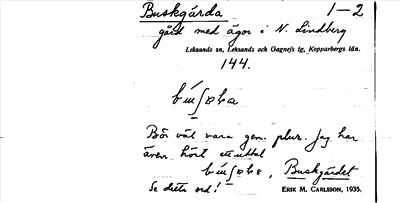 Buskgårda 1-2
gård med ägor i N. Lindberg
Leksands sn, Leksands och Gagnefs tg, Kopparbergs län.
144.
Bör väl vara gen. plur. Jag har
även hört ett uttal
, Buskgårdet
Se detta ord!
ERIK M. CARLSSON, 1935.